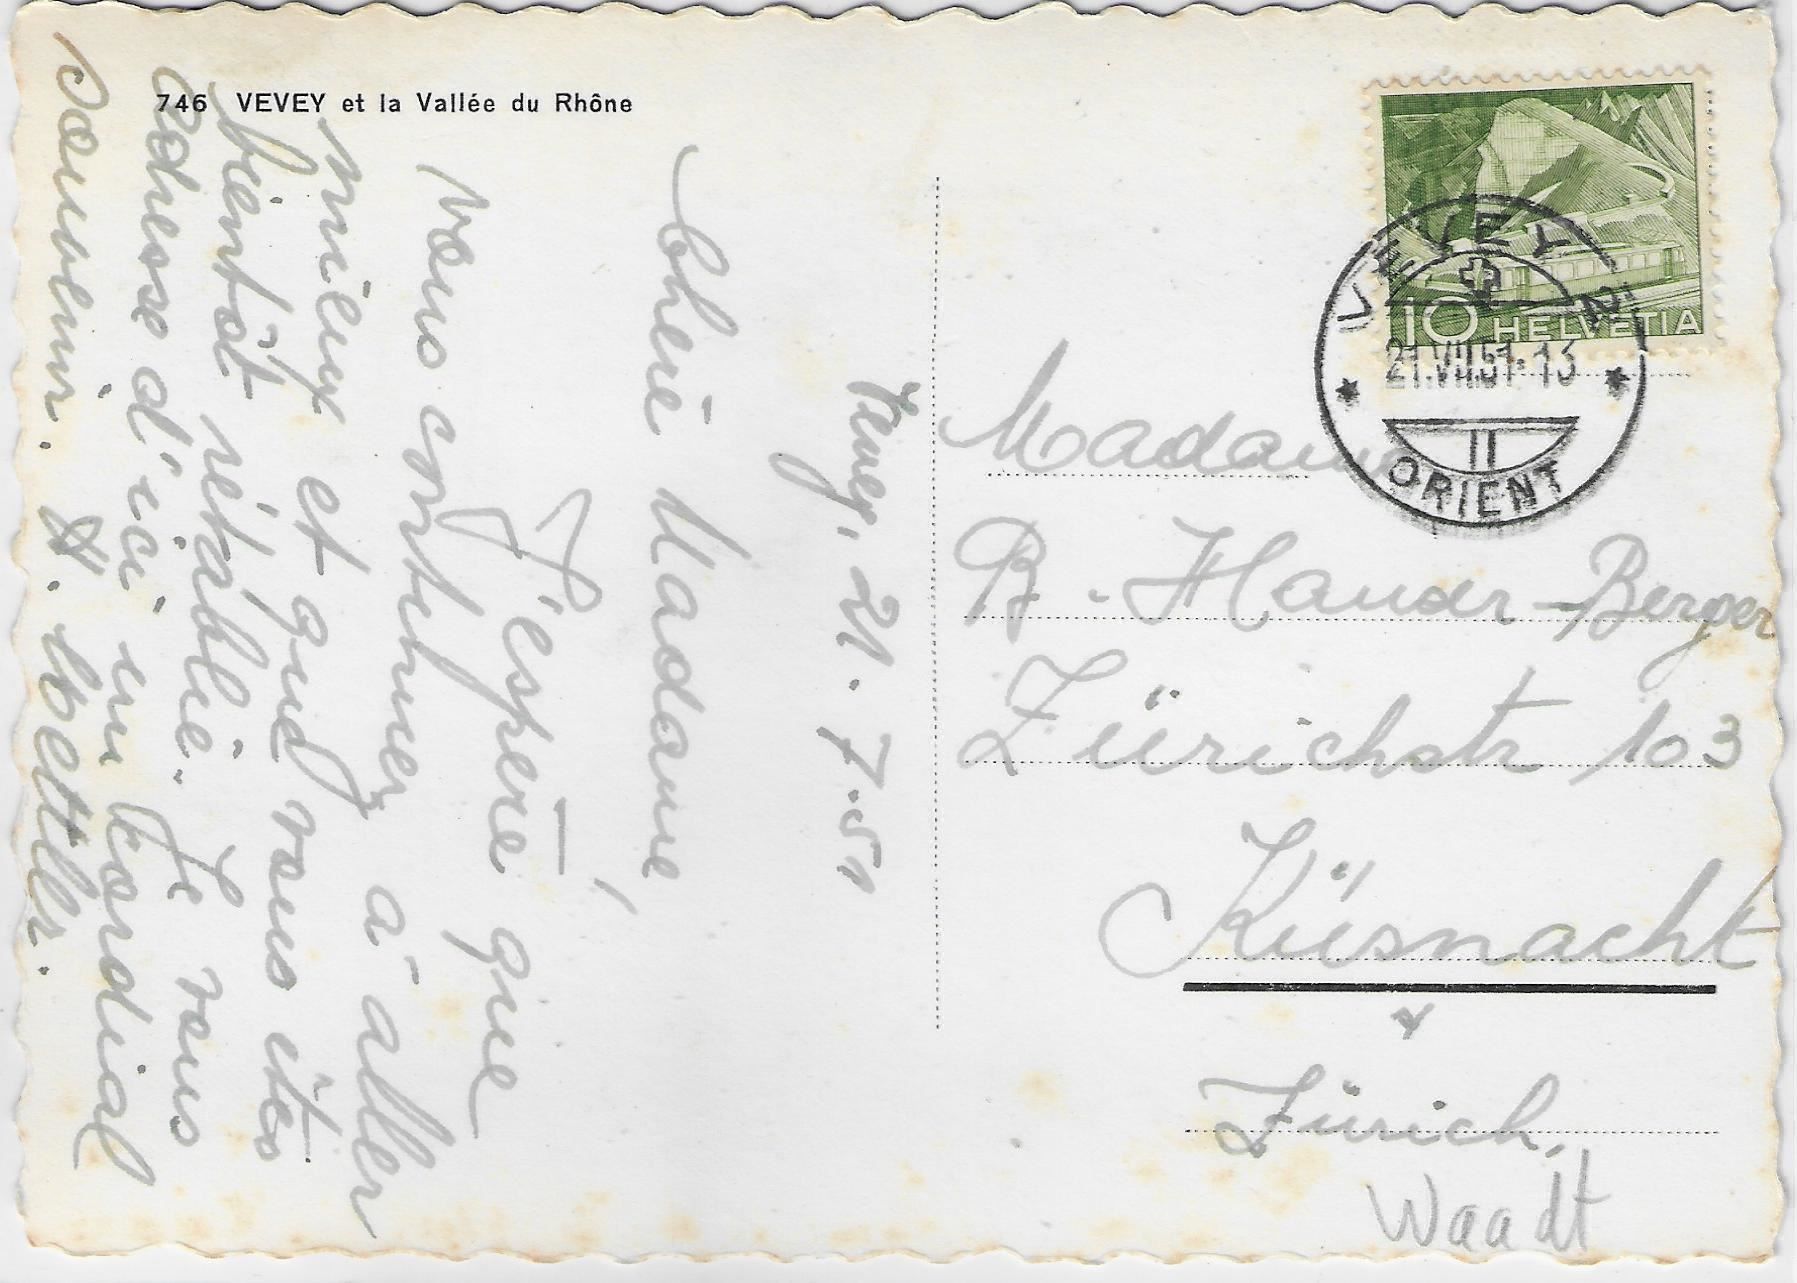 746 VEVEY et la Vallée du Rhône
Vevey, 21.7.51
Chère Madame,
J'espère que
vous continuez à aller
mieux et que vous êtes
bientôt rétablie. Je vous
adresse d'ici un cordial
souvenir.
10 HELVETIA
VEVEY 2
21.VII.51.13
II
ORIENT
Madame
B. Hauser-Berger
Zürichstr 103
Küsnacht
Zürich,
Waadt